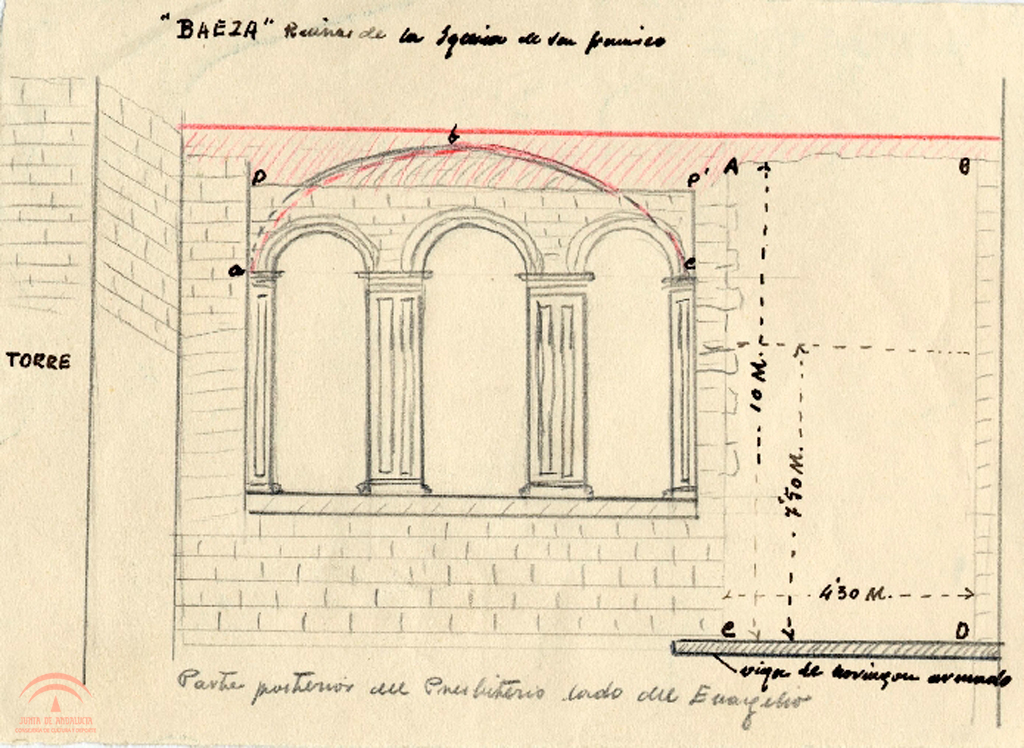 "BAEZA" Ruinas de la Iglesia de San Francisco
b
P
P'
A
B
a
c
TORRE
10 M.
7'50 M.
4'30 M.
C
D
viga de hormigon armado
Parte posterior del Presbiterio lado del Evangelio
JUNTA DE ANDALUCIA
CONSEJERÍA DE CULTURA Y DEPORTE